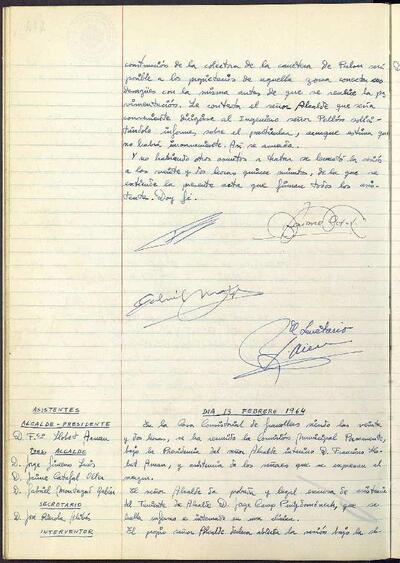 construcción de la colectora de la carretera de Palou será
posible a los propietarios de aquella zona conectar sus
desagües con la misma antes de que se realice la pa-
vimentación. Le contesta el señor Alcalde que sería
conveniente dirigirse al Ingeniero señor solici-
tándole informe, sobre el particular, aunque estima que
no habrá inconveniente. Así se acuerda.
Y no habiendo otros asuntos a tratar se levantó la sesión
a las veinte y dos horas quince minutos, de la que se
extiende la presente acta que firman todos los asis-
tentes. Doy fé.
El Secretario
ASISTENTES
ALCALDE-PRESIDENTE
D. Fco Llobet Arnan
TTES. ALCALDE
D. Jorge Gimeno
D. Jaime Catafal
D. Gabriel Montagud
SECRETARIO
D. José
INTERVENTOR
DIA 13 FEBRERO 1964
En la Casa Consistorial de Granollers siendo las veinte
y dos horas, se ha reunido la Comisión Municipal Permanente,
bajo la Presidencia del señor Alcalde interino D. Francisco Llo-
bet Arnan, y asistencia de los señores que se expresan al
margen.
El señor Alcalde da y legal excusa de asistencia
del Teniente de Alcalde D. Jorge Camp Puigdomènech, que se
halla enfermo e internado en una clínica.
El propio señor Alcalde declara abierta la sesión bajo la si-